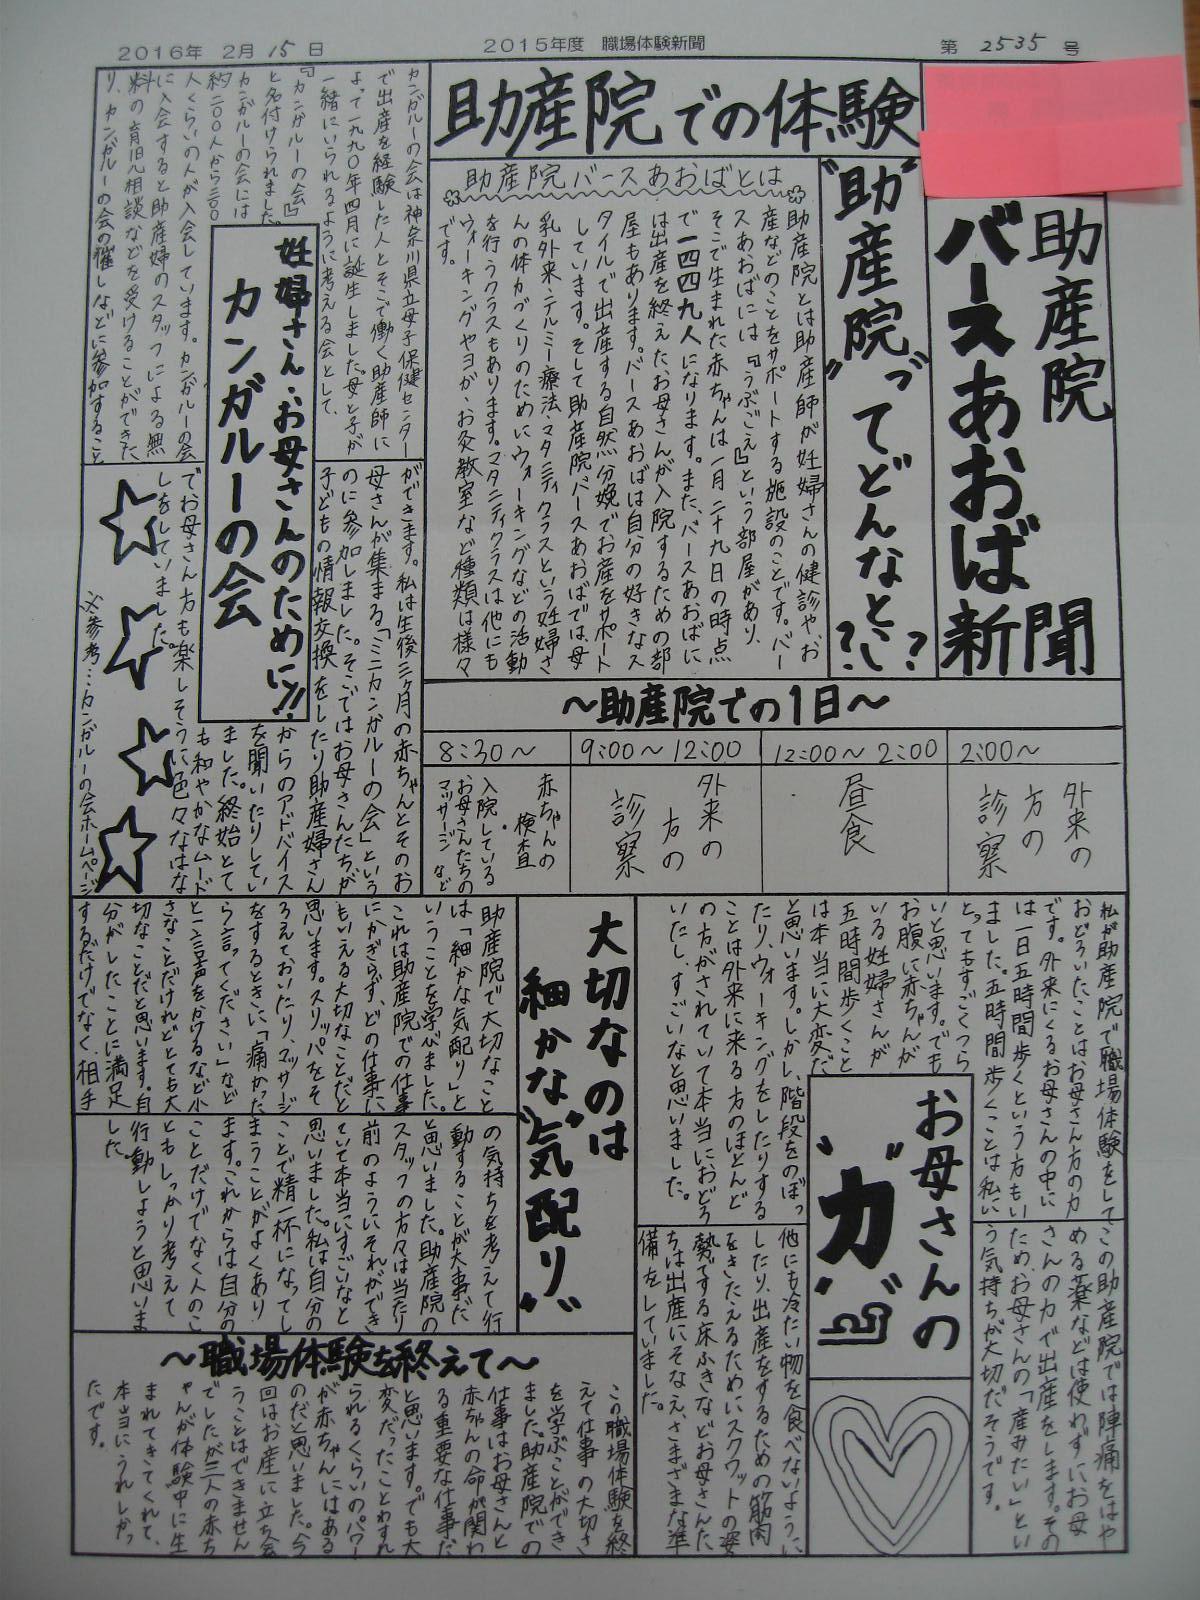 2016年 2月 15日
2015年度 職場体験新聞
第 2535 号
助産院
バースあおば
新聞
助産院での体験
"助産院"って
どんなとこ
??
助産院バースあおばとは
助産院とは助産師が妊婦さんの健診や、お
産などのことをサポートする施設のことです。バー
スあおばには『うぶごえ』という部屋があり、
そこで生まれた赤ちゃんは一月二十九日の時点
で一四四九人になります。また、バースあおばに
は出産を終えたお母さんが入院するための部
屋もあります。バースあおばは自分の好きなス
タイルで出産する自然分娩でお産をサポート
しています。そして助産院バースあおばでは母
乳外来・テルミー療法・マタニティクラスという妊婦さ
んの体力づくりのためにウォーキングなどの活動
を行うクラスもあります。マタニティクラスは他にも
ウォーキングやヨガ、お灸教室など種類は様々
です。
妊婦さん・お母さんのために!!
カンガルーの会
カンガルーの会は神奈川県立母子保健センター
で出産を経験した人とそこで働く助産師に
よって一九九〇年四月に誕生しました。母と子が
一緒にいられるように考える会として、
『カンガルーの会』
と名付けられました。
カンガルーの会には
約二〇〇人から三〇〇
人くらいの人が入会しています。カンガルーの会
に入会すると助産婦のスタッフによる無
料の育児相談などを受けることができた
り、カンガルーの会の催しなどに参加すること
ができます。私は生後三ヶ月の赤ちゃんとそのお
母さんが集まる「ミニカンガルーの会」という
のに参加しました。そこではお母さんたちが
子どもの情報交換をしたり助産婦さん
からのアドバイス
を聞いたりしてい
ました。終始とて
も和やかなムード
でお母さん方も楽しそうに色々なはな
しをしていました。
※参考…カンガルーの会ホームページ
〜助産院での1日〜
8:30〜
赤ちゃんの
検査
入院している
お母さんたちの
マッサージ など
9:00〜12:00
外来の
方の
診察
12:00〜2:00
昼食
2:00〜
外来の
方の
診察
お母さんの
"力"
私が助産院で職場体験をして
おどろいたことはお母さん方の力
です。外来にくるお母さんの中に
は一日五時間歩くという方もい
ました。五時間歩くことは私に
とってもすごくつら
いと思います。でも
お腹に赤ちゃんが
いる妊婦さんが
五時間歩くこと
は本当に大変だ
と思います。しかし、階段をのぼっ
たり、ウォーキングをしたりする
ことは外来に来る方のほとんど
の方がされていて本当におどろ
いたし、すごいなと思いました。
この助産院では陣痛をはや
める薬などは使わずにお母
さんの力で出産をします。その
ため、お母さんの「産みたい」とい
う気持ちが大切だそうです。
他にも冷たい物を食べないように
したり、出産をするための筋肉
をきたえるためにスクワットの姿
勢でする床ふきなどお母さんた
ちは出産にそなえ、さまざまな準
備をしていました。
大切なのは
細かな"気配り"
助産院で大切なこと
は「細かな気配り」と
いうことを学びました。
これは助産院での仕事
にかぎらず、どの仕事に
もいえる大切なことだと
思います。スリッパをそ
ろえておいたり、マッサージ
をするときに「痛かった
ら言ってください」など
と一言声をかけるなど小
さなことだけれどとても大
切なことだと思います。自
分がしたことに満足
するだけでなく、相手
の気持ちを考えて行
動することが大事だ
と思いました。助産院の
スタッフの方々は当たり
前のようにそれができ
ていて本当にすごいなと
思いました。私は自分の
ことで精一杯になってし
まうことがよくあり
ます。これからは自分の
ことだけでなく人のこ
ともしっかり考えて
行動しようと思いま
した。
〜職場体験を終えて〜
この職場体験を終
えて仕事の大切さ
を学ぶことができ
ました。助産院での
仕事はお母さんと
赤ちゃんの命が関わ
る重要な仕事だ
と思います。でも大
変だったことわすれ
られるくらいのパワー
が赤ちゃんにはある
のだと思いました。今
回はお産に立ち会
うことはできません
でしたが三人の赤ち
ゃんが体験中に生
まれてきてくれて、
本当にうれしかっ
たです。